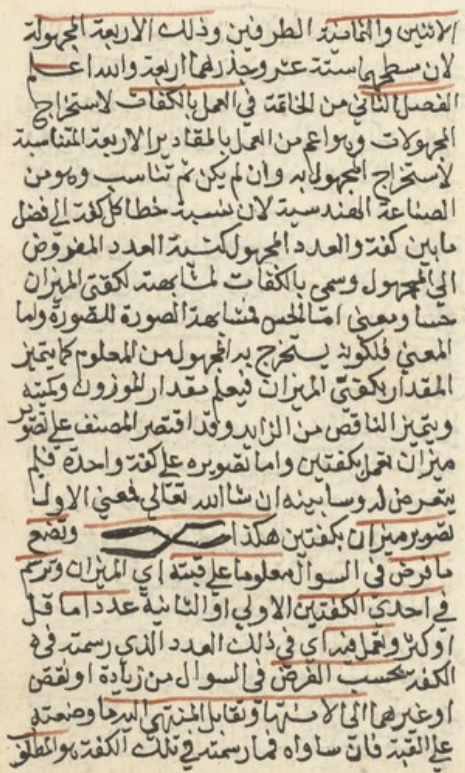 الاثنين والثمانية الطرفين وذلك الاربعة المجهولة
لان مسطحهما ستة عشر وجذرهما اربعة والله اعلم
الفصل الثاني من الخاتمة في العمل بالكفات لاستخراج
المجهولات وهو اعم من العمل بالمقادير الاربعة المتناسبة
لاستخراج المجهول به وان لم يكن ثم تناسب وهو من
الصناعة الهندسية لان نسبة خطا كل كفة الى فضل
ما بين كفة والعدد المجهول كنسبة العدد المفروض
الى المجهول وسمي بالكفات لمشابهته لكفتي الميزان
حسا ومعنى اما الحس فمشابهة الصورة للصورة واما
المعنى فلكونه يستخرج به المجهول من المعلوم كما يتميز
المقدار بكفتي الميزان فيعلم مقدار الموزون وكميته
ويتميز الناقص من الزايد وقد اقتصر المصنف على تصوير
ميزان تعمل بكفتين واما تصويره على كفة واحدة فلم
يتعرض له وسابينه ان شا الله تعالى فمعنى الاول
تصوير ميزان بكفتين هكذا وتضع
ما فرض في السوال معلوما على قبته اي الميزان وترسم
في احدى الكفتين الاولى او الثانية عددا ما قل
او كثر وتعمل فيه اي في ذلك العدد الذي رسمته في
الكفة بحسب الفرض في السوال من زيادة او نقص
او غيرهما الى الانتها وتقابل المنتهي اليه ما وضعته
على القبة فان ساواه فما رسمته في تلك الكفة هو المطلوب